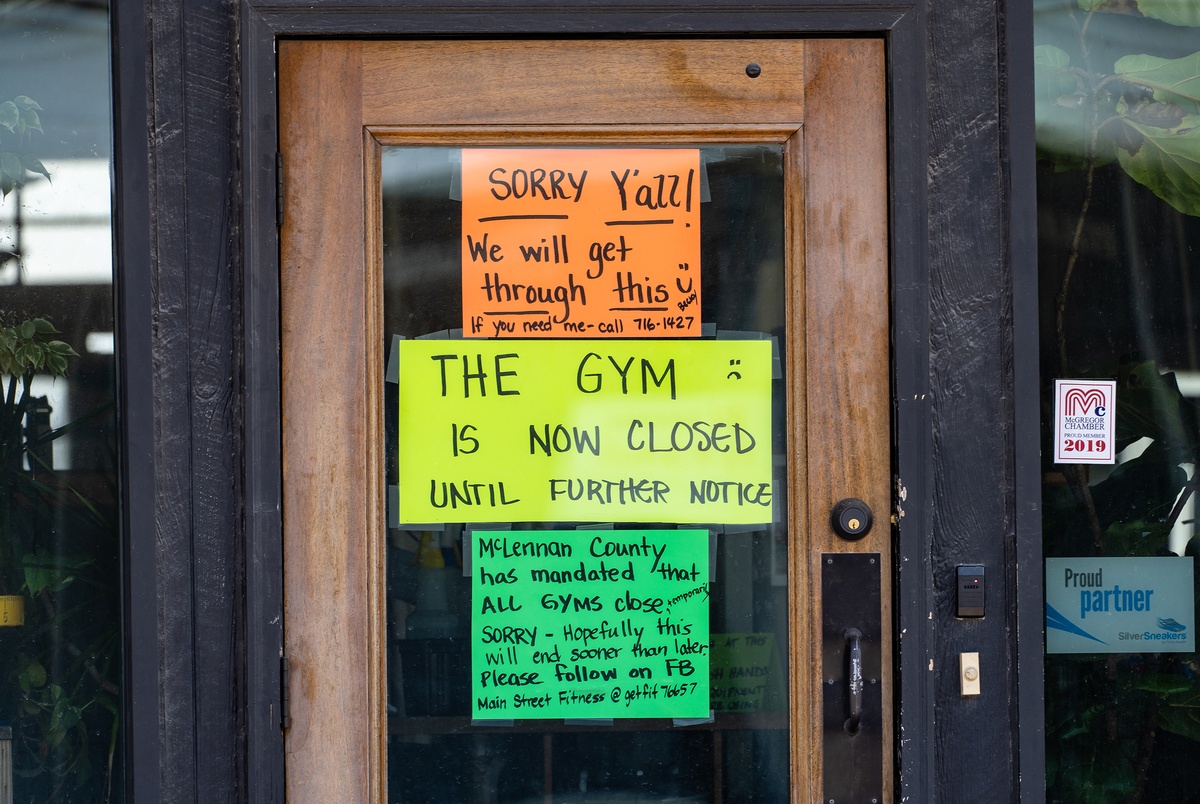 SORRY Y'all!
We will get
through this
Becky
If you need me-call 716-1427
THE GYM
IS NOW CLOSED
UNTIL FURTHER NOTICE
McLennan County
has mandated that
ALL GYMS close temporarily
SORRY - Hopefully this
will end sooner than later.
Please follow on FB
Main Street Fitness @getfit76657
AT THIS
HANDS
McGREGOR
CHAMBER
PROUD MEMBER
2019
Proud
partner
SilverSneakers